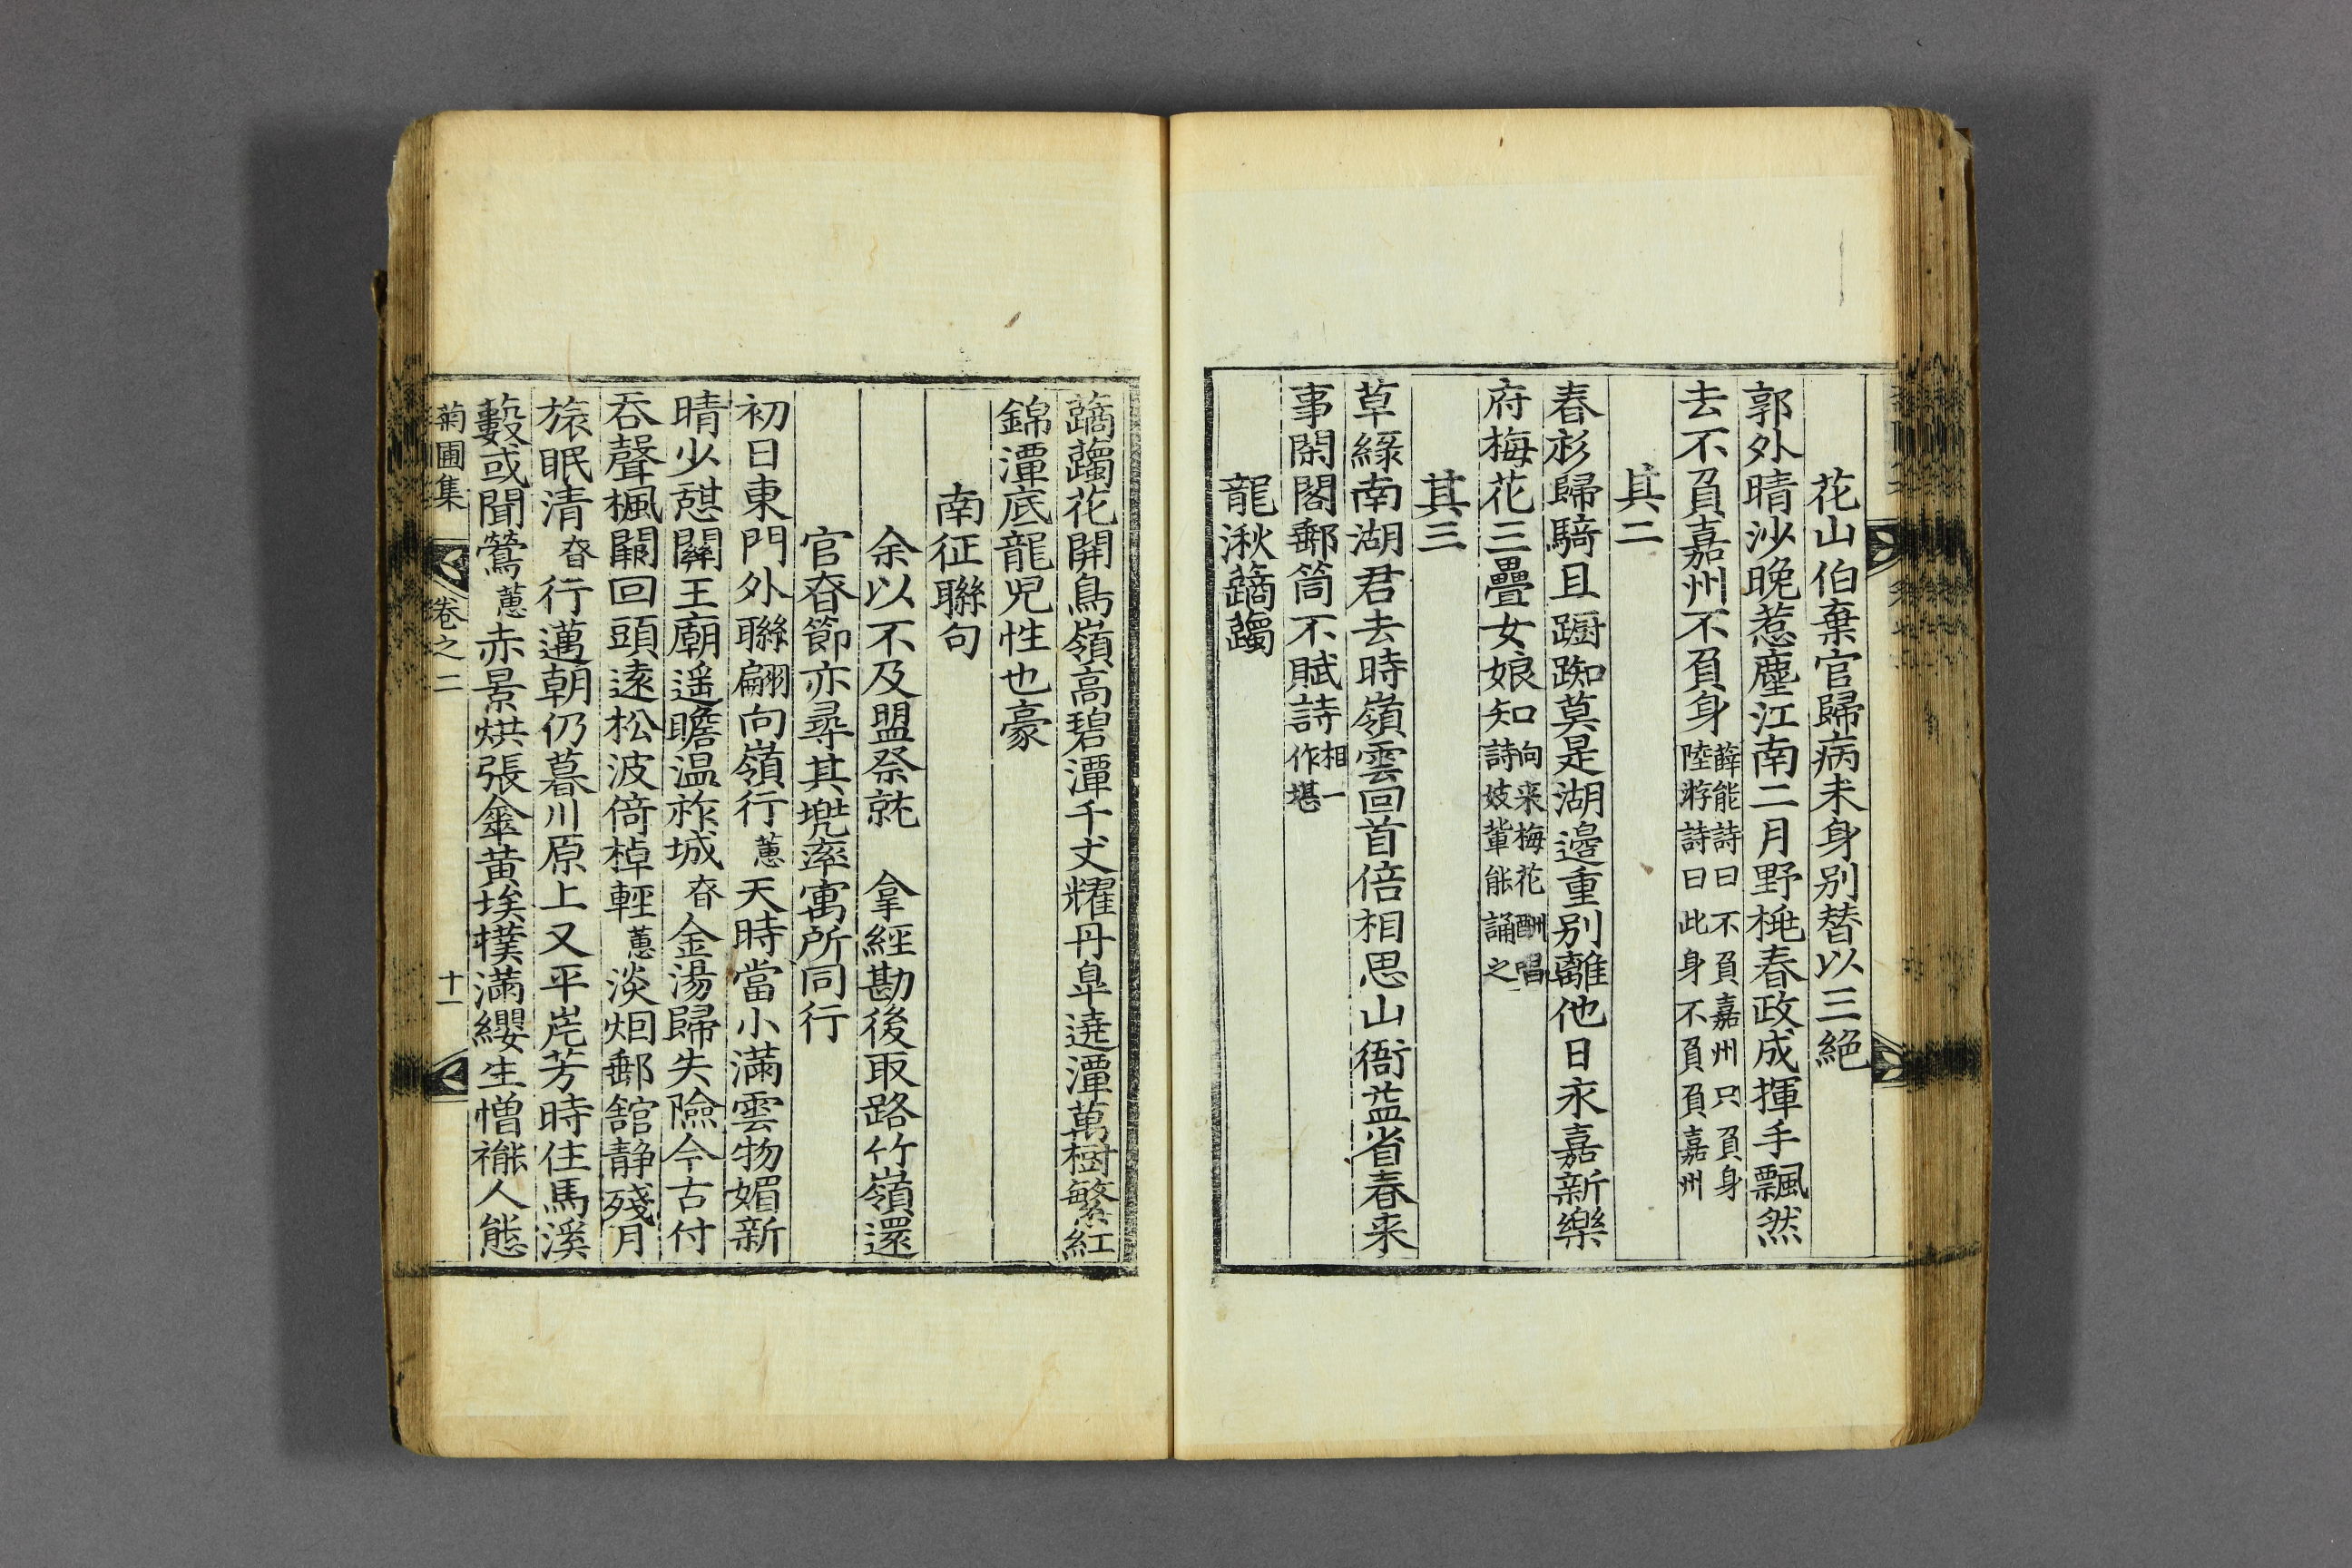 花山伯棄官歸病未身別替以三絕
郭外晴沙晚惹塵江南二月野桃春政成揮手飄然
去不負嘉州不負身薛能詩曰不負嘉州只負身陸游詩曰此身不負負嘉州
其二
春衫歸騎且踟躕莫是湖邊重別離他日永嘉新樂
府梅花三疊女娘知向来梅花酬唱詩妓輩能誦之
其三
草綠南湖君去時嶺雲回首倍相思山衙盖省春来
事閑閣郵筒不賦詩相一作堪
龍湫躑躅
躑躅花開鳥嶺高碧潭千丈耀丹皐遶潭萬樹繁紅
錦潭底龍児性也豪
南征聯句
余以不及盟祭就 拿經勘後取路竹嶺還
官昚節亦尋其塊率寓所同行
初日東門外聯翩向嶺行蕙天時當小滿雲物媚新
晴少憩關王廟遥瞻温祚城昚金湯歸失險今古付
吞聲楓闕回頭遠松波倚棹輕蕙淡烟郵舘静殘月
旅眠清昚行邁朝仍暮川原上又平岸芳時住馬溪
藪或聞鶯蕙赤景烘張傘黃埃撲滿纓生憎褦人態
菊圃集 卷之二 十一